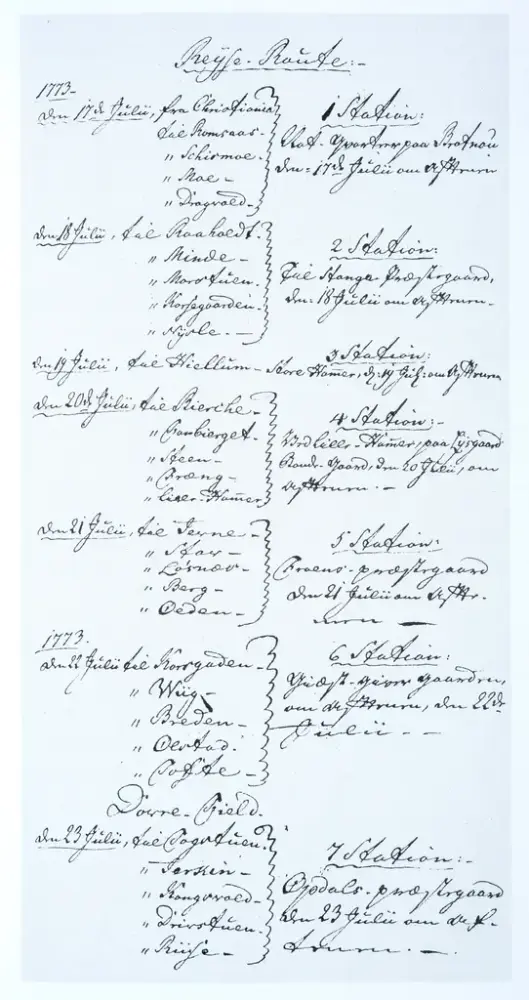 Reyse-Route:-
1773-
den 17de Julii, fra Christiania
til Romsaas-
" Schismoe-
" Moe-
" Dragvold-
1 Station:
paa
den 17de Julii om Afftenen
den 18 Julii, til Raaholdt.
" Minde-
" Morstuen.
" Korsegaarden-
" Nysle.-
2 Station:
Til Stange Præstegaard,
den 18 Julii om Afftenen-
den 19 Julii, til Hiellum-
3 Station:
Store Hamer, d. 19 Julii om Afftenen
den 20de Julii, til Kierche-
" Fronbierget-
" Steen-
" Fræng-
" Liller-Hammer
4 Station:-
Ved Liller-Hammer, paa Lysgaard
Bonde-Gaard, den 20 Julii, om
Afftenen.-
den 21 Julii, til
" Star-
" Lørnæs-
" Berg-
" Oeden-
5 Station:
Froens-præstegaard
den 21 Julii om Affte-
nen-
1773.
den 22 Julii til Korsgaden-
" Wiig-
" Breden-
" Oerstad.
" Tofte-
6 Station:
Giæst-giver gaarden,
om Afftenen, den 22de
Julii.--
Dovre-Field.
den 23 Julii, til Fogstuen.
" Jerkin-
" Kongsvold-
" Drivstuen.
" Riise-
7 Station:-
Opdals-præstegaard
den 23 Julii om Af-
tenen.-